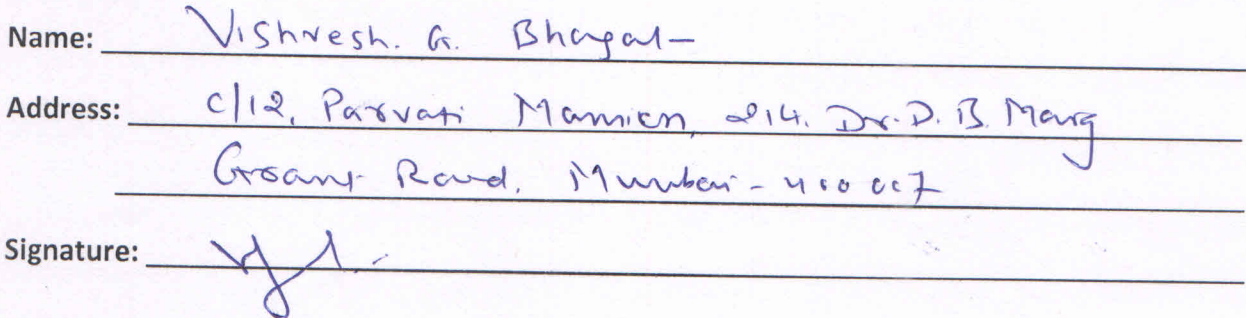 Name: Vishvesh. G. Bhagat
Address: C/12, Parvati Mansion, 214. Dr. D. B. Marg
Grant Road. Mumbai - 400 007
Signature: